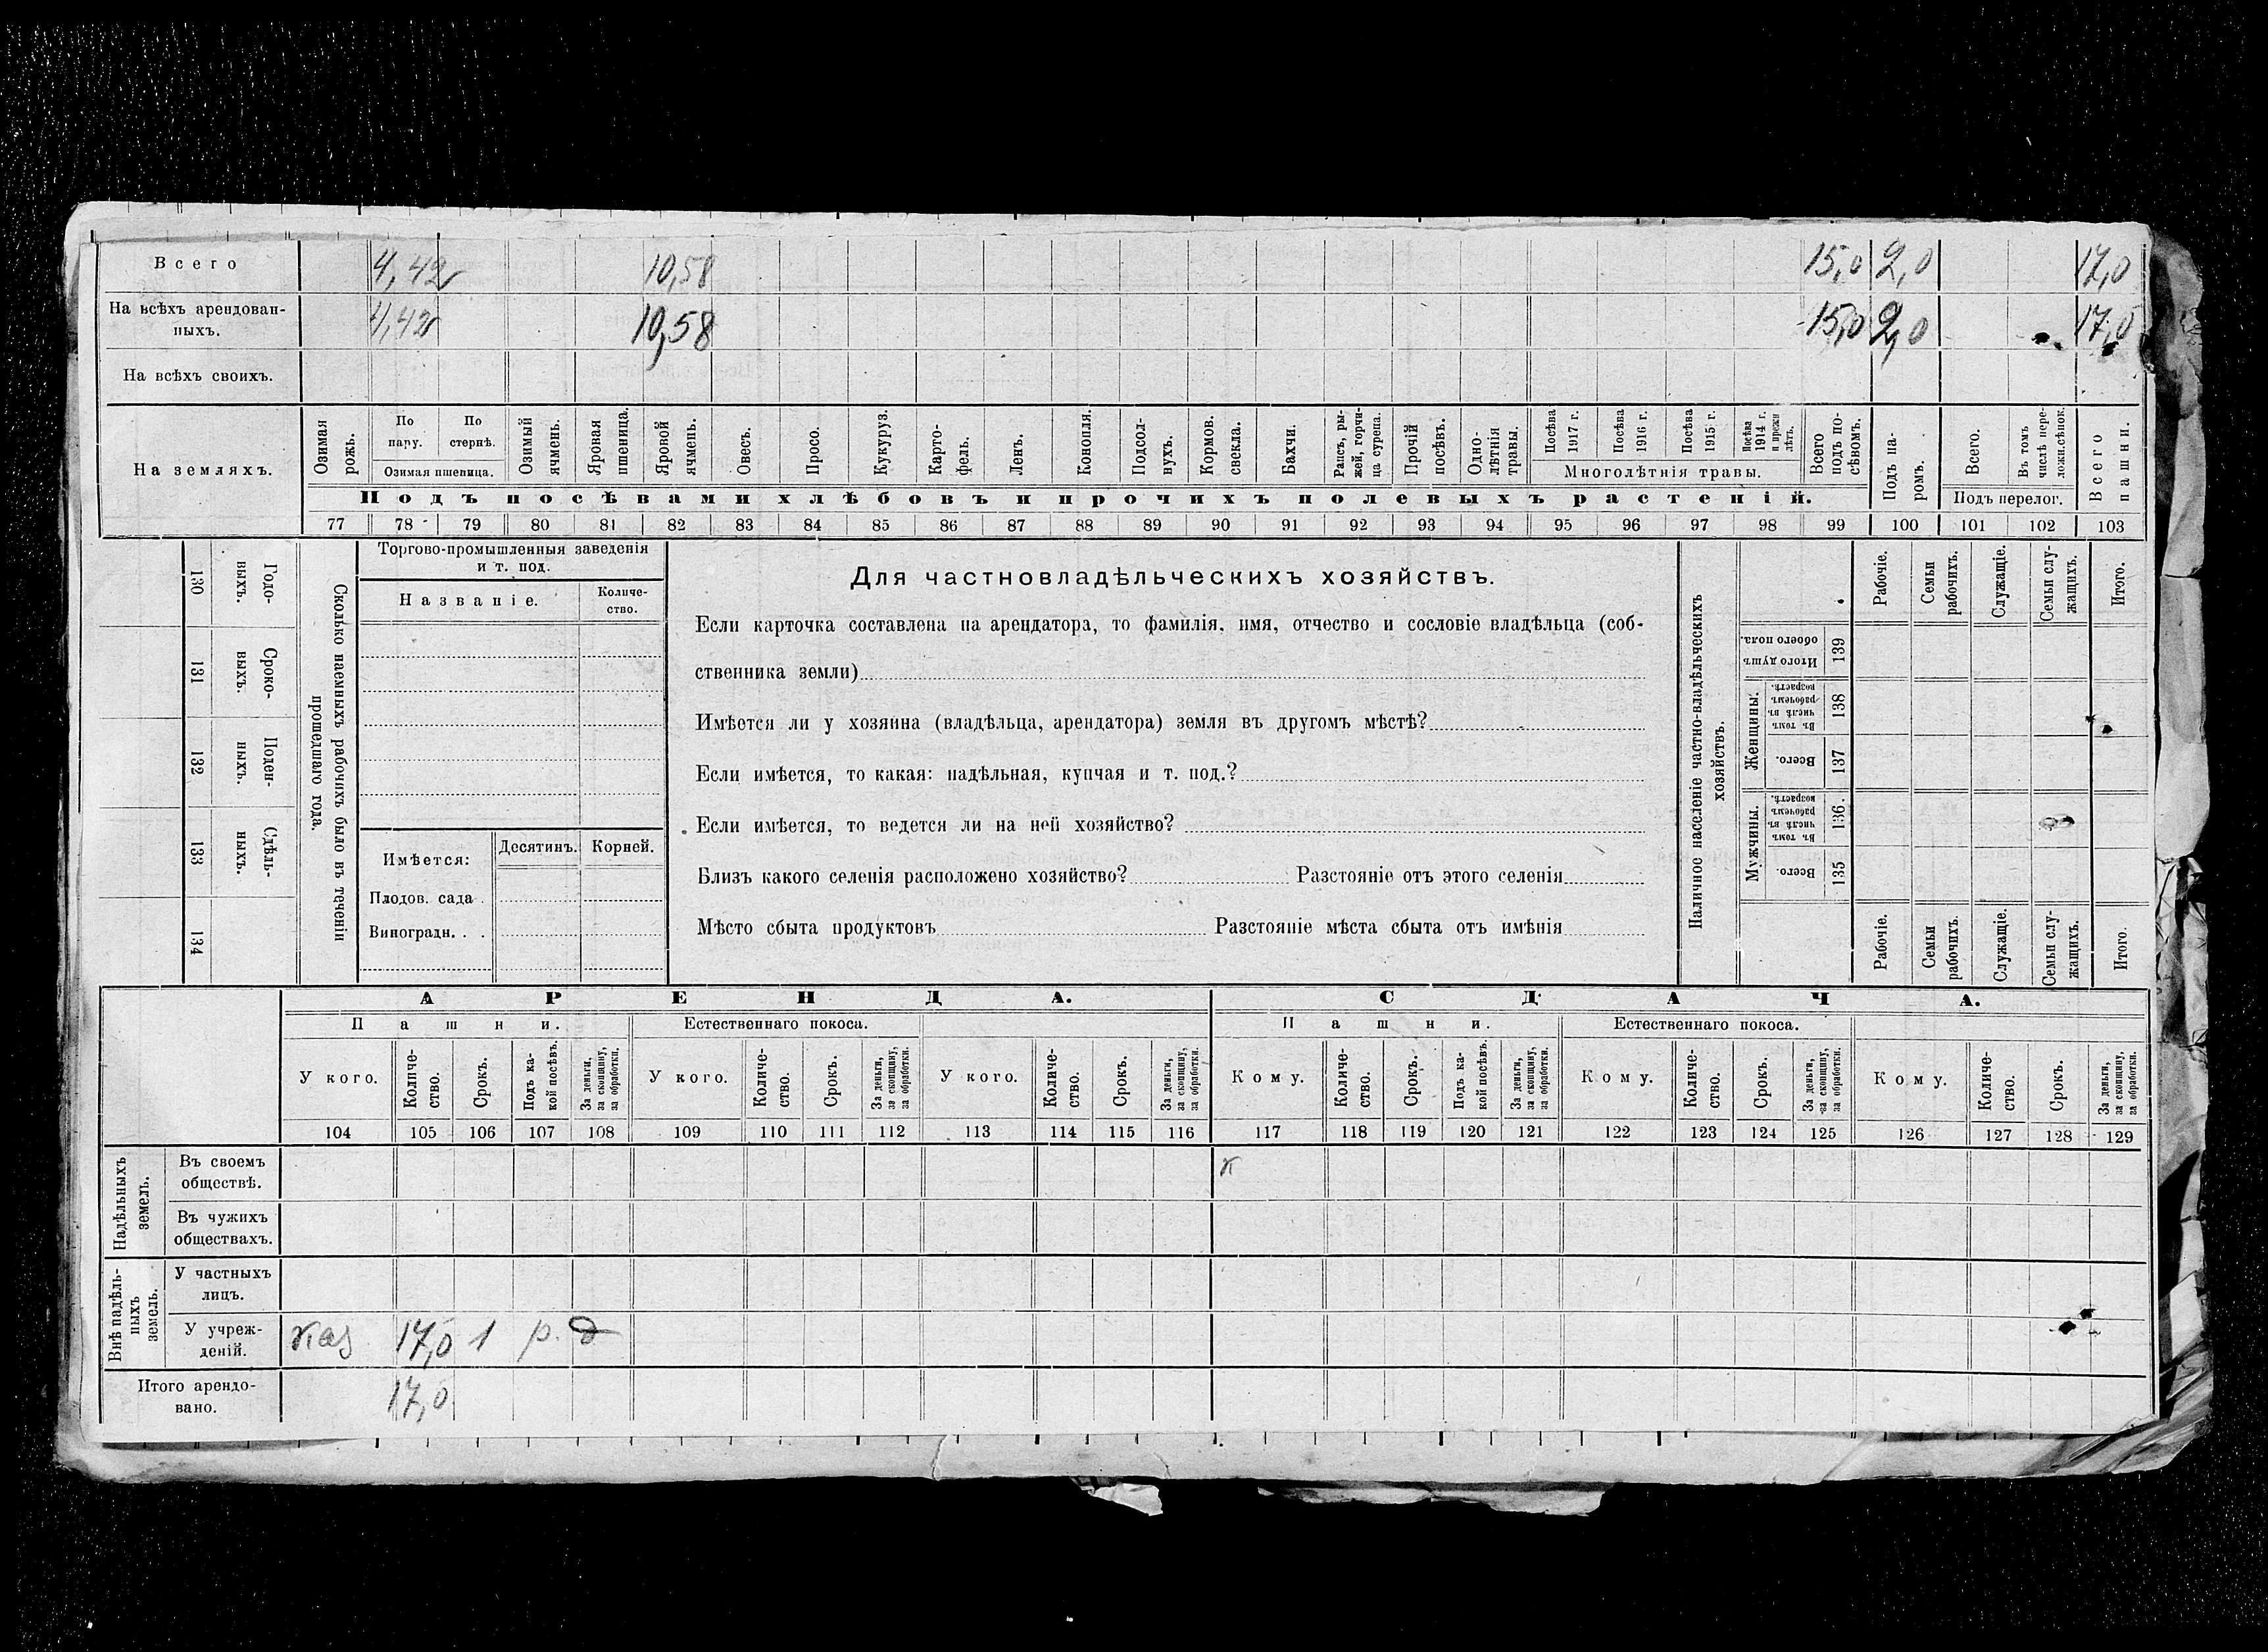 Всего 4,42 10,58 15,0 2,0 17,0
На всѣхъ арендован-
ныхъ. 4,42 10,58 15,0 2,0 17,0
На всѣхъ своихъ.
На земляхъ.
Озимая рожь.
По пару.
По стернѣ.
Озимая пшеница.
Озимый ячмень.
Яровая пшеница.
Яровой ячмень.
Овесъ.
Просо.
Кукуруз.
Карто-
фель.
Ленъ.
Конопля.
Подсол-
нухъ.
Кормов. свекла.
Бахчи.
Рапсъ, ры-
жей, горчи-
ца сурепа.
Прочій посѣвъ.
Одно-
лѣтнія травы.
Посѣва 1917 г.
Посѣва 1916 г.
Посѣва 1915 г.
Посѣва 1914 г. и прежн лѣтъ.
Многолѣтнія травы.
Всего подъ по-
сѣвомъ.
Подъ па-
ромъ.
Всего.
Въ томъ числѣ пере-
ложн.сѣнок.
Подъ перелог.
Всего пашни.
Подъ посѣвами хлѣбовъ и прочихъ полевыхъ растеній.
77 78 79 80 81 82 83 84 85 86 87 88 89 90 91 92 93 94 95 96 97 98 99 100 101 102 103
130 Годо-
выхъ.
131 Сроко-
выхъ.
132 Поден-
ныхъ.
133 Сдѣль-
ныхъ.
134
Сколько наемныхъ рабочихъ было въ теченіи
прошедшаго года.
Торгово-промышленныя заведенія
и т. под.
Названіе.
Количе-
ство.
Имѣется:
Десятинъ.
Корней.
Плодов. сада
Виноградн. . .
Для частновладѣльческихъ хозяйствъ.
Если карточка составлена на арендатора, то фамилія, имя, отчество и сословіе владѣльца (соб-
ственника земли)
Имѣется ли у хозяина (владѣльца, арендатора) земля въ другомъ мѣстѣ?
Если имѣется, то какая: надѣльная, купчая и т. под.?
Если имѣется, то ведется ли на ней хозяйство?
Близъ какого селенія расположено хозяйство? Разстояніе отъ этого селенія
Мѣсто сбыта продуктовъ Разстояніе мѣста сбыта отъ имѣнія
Наличное населеніе частно-владѣльческихъ
хозяйствъ.
Рабочіе.
Семьи рабочихъ.
Служащіе.
Семьи слу-
жащихъ.
Итого.
Итого душъ обоего пола. 139
Женщины.
Въ томъ числѣ въ рабочемъ возрастѣ. 138
Всего. 137
Мужчины.
Въ томъ числѣ въ рабочемъ возрастѣ. 136.
Всего. 135
Рабочіе.
Семьи рабочихъ.
Служащіе.
Семьи слу-
жащихъ.
Итого.
АРЕНДА. СДАЧА.
Пашни. Естественнаго покоса. Пашни. Естественнаго покоса.
У кого.
Количе-
ство.
Срокъ.
Подъ ка-
кой посѣвъ.
За деньги, за скопщину, за обработки.
У кого.
Количе-
ство.
Срокъ.
За деньги, за скопщину, за обработки.
У кого.
Количе-
ство.
Срокъ.
За деньги, за скопщину, за обработки.
Кому.
Количе-
ство.
Срокъ.
Подъ ка-
кой посѣвъ.
За деньги, за скопщину, за обработки.
Кому.
Количе-
ство.
Срокъ.
За деньги, за скопщину, за обработки.
Кому.
Количе-
ство.
Срокъ.
За деньги, за скопщину, за обработки.
104 105 106 107 108 109 110 111 112 113 114 115 116 117 118 119 120 121 122 123 124 125 126 127 128 129
Надѣльныхъ земель.
Въ своемъ
обществѣ.
Въ чужихъ
обществахъ.
Внѣ надѣль-
ныхъ земель.
У частныхъ
лицъ.
У учреж-
деній. каз 17,0 1 р. д
Итого арендо-
вано. 17,0